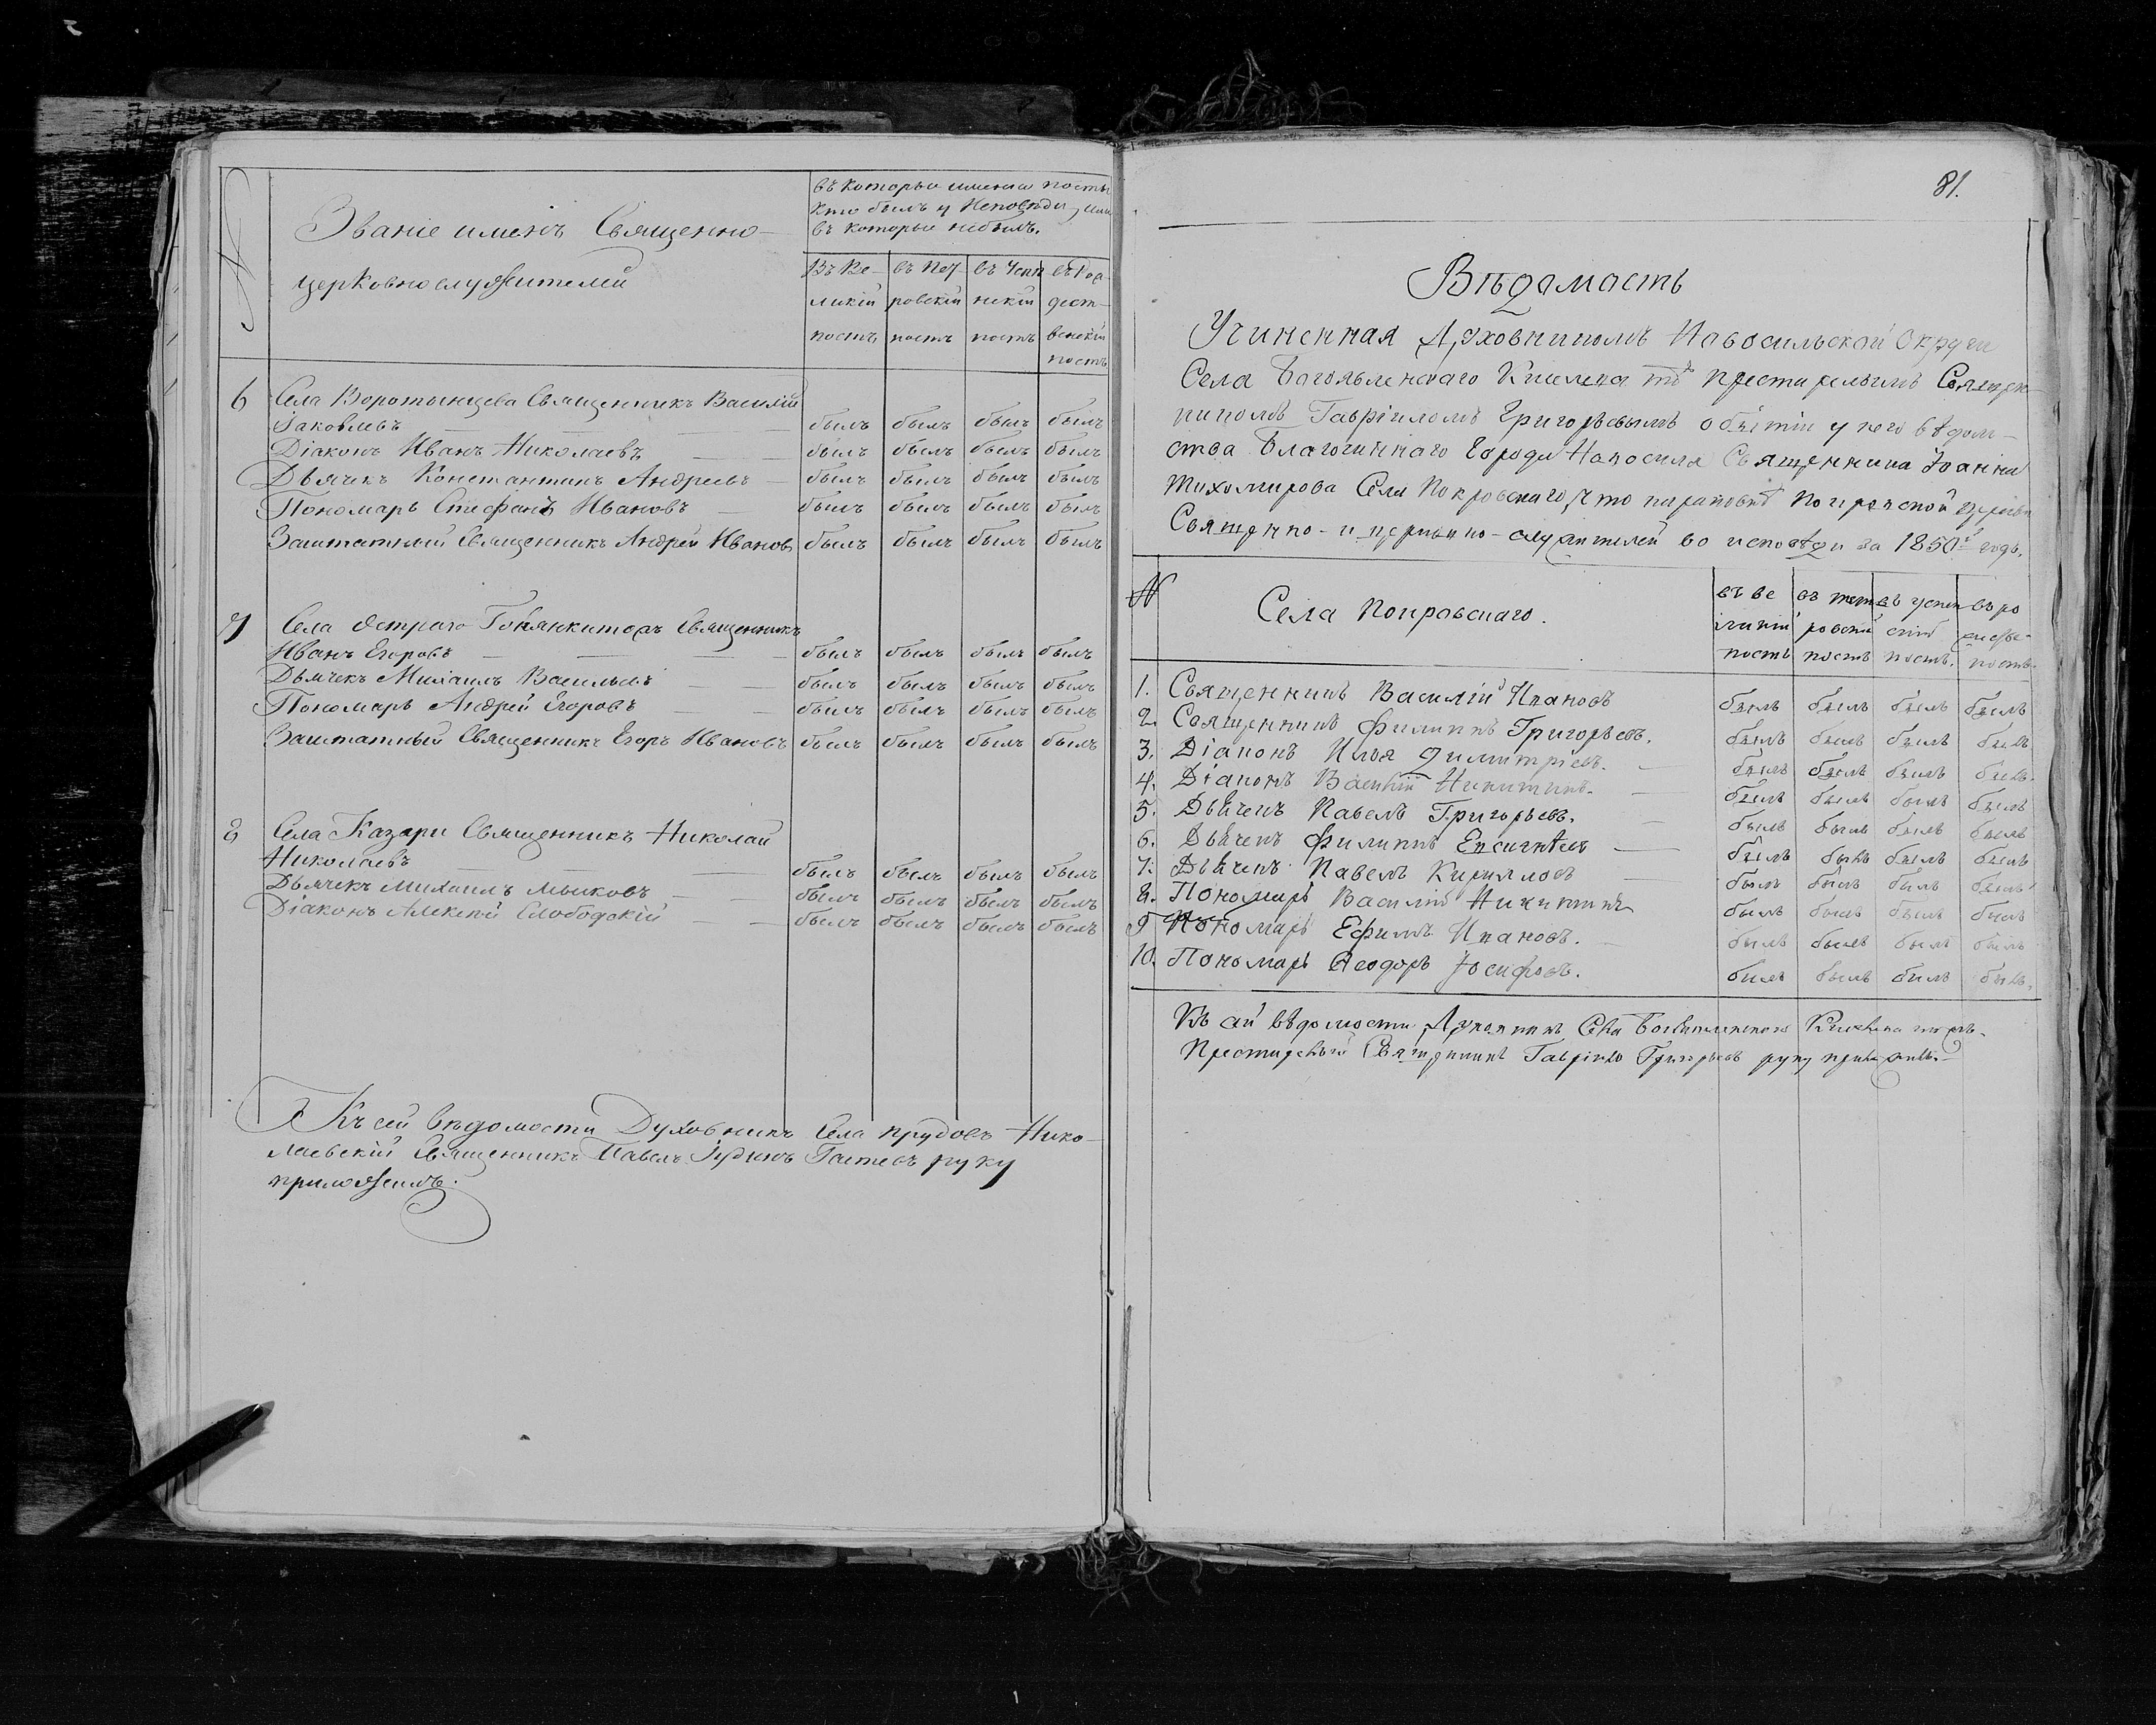 №
Званіе именъ Священно-
церковнослужителей
въ которыи именно посты
кто былъ у Исповѣди, или
въ которые небылъ.
Въ Ве- въ Пет- въ Успе въ Рож
ликій ровскій нскій дест-
постъ постъ постъ венскій
постъ
6 Села Воротынцева Священникъ Василій
Іаковлевъ былъ былъ былъ былъ
Діаконъ Иванъ Николаевъ былъ былъ былъ былъ
Дьячекъ Константинъ Андреевъ былъ былъ былъ былъ
Пономарь Стефанъ Ивановъ былъ былъ былъ былъ
Заштатный Священникъ Андрей Ивановъ былъ былъ былъ былъ
7 Села Острого Священникъ
Иванъ Егоровъ былъ былъ былъ былъ
Дьячекъ Михаилъ Васильевъ былъ былъ былъ былъ
Пономарь Андрей Егоровъ былъ былъ былъ былъ
Заштатный Священникъ Егоръ Ивановъ былъ былъ былъ былъ
8 Села Казари Священникъ Николай
Николаевъ былъ былъ былъ былъ
Дьячекъ Михаилъ Мысковъ былъ былъ былъ былъ
Діаконъ Алексей Слободскій былъ былъ былъ былъ
Къ сей вѣдомости Духовникъ Села Прудовъ Нико-
лаевскій Священникъ Павелъ Іудинъ руку
приложилъ.
81.
Вѣдомость
Учиненная Духовникомъ Новосильской Округи
Села Богоявленскаго Киселева тожъ Престарелымъ Священ-
никомъ Гавріиломъ Григорьевымъ о бытіи у него вѣдом-
ства Благочиннаго Города Новосиля Священника Іоанна
Тихомирова Села Покровскаго, что Покровской Церкви
Священно- и церковно-служителей во исповѣди за 1850й годъ.
№ Села Покровскаго.
въ ве въ пет въ успен въ ро
ликій ровскій скій
постъ постъ постъ. постъ.
1. Священникъ Василій Ивановъ былъ былъ былъ былъ
2. Священникъ Филиппъ Григорьевъ. былъ былъ былъ былъ
3. Діаконъ Илья Димитріевъ. былъ былъ былъ былъ.
4. Діаконъ Василій Никитинъ. былъ былъ былъ былъ
5. Дьячекъ Павелъ Григорьевъ. былъ былъ былъ былъ
6. Дьячекъ Филиппъ Евсигнѣевъ былъ былъ былъ былъ
7. Дьячекъ Павелъ Кирилловъ былъ былъ былъ былъ
8. Пономарь Василій Никитинъ былъ былъ былъ былъ
9 Пономарь Ефимъ Ивановъ. былъ былъ былъ былъ
10. Пономарь Ѳеодоръ Іосифовъ. былъ былъ былъ былъ.
Къ сей вѣдомости Духовникъ Села Богоявленскаго Киселева тожъ
Престарелый Священникъ Гавріилъ Григорьевъ руку приложилъ.